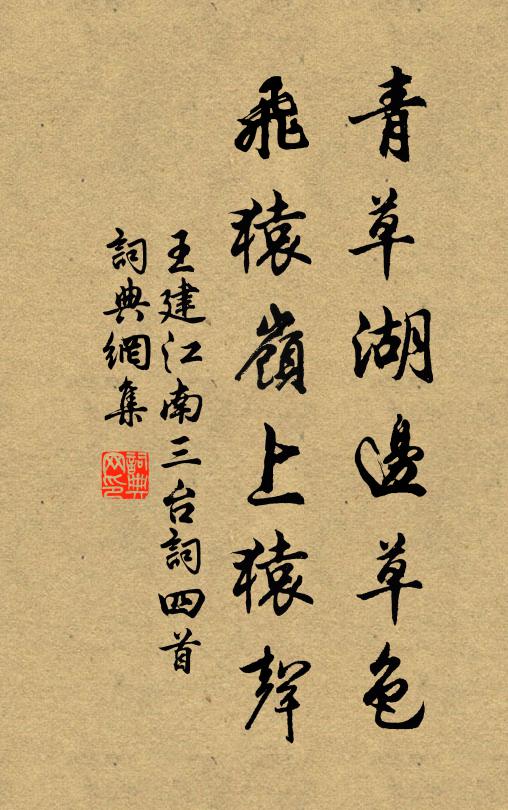 青草湖邊草色
飛猿嶺上猿聲
王建江南三台詞四首
詞典網集
詞典網印